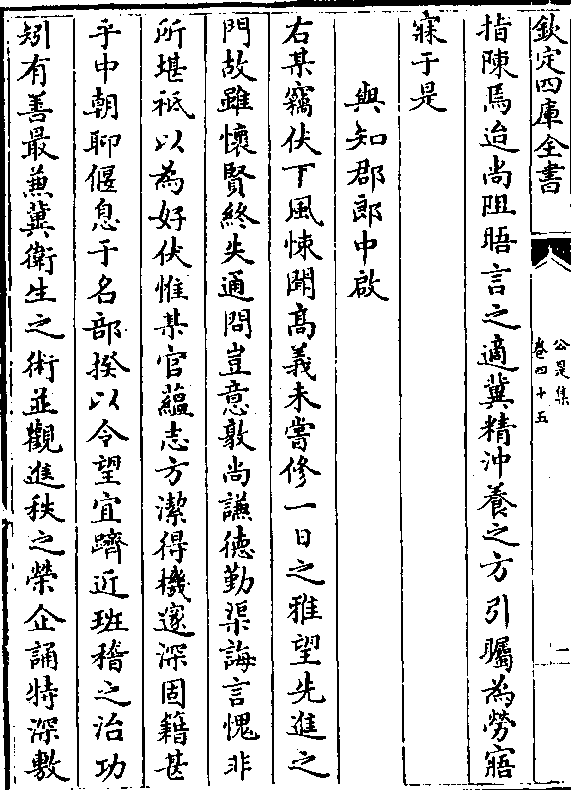 欽定四庫全書
公是集
卷四十五
一
指陳焉迨尚阻晤言之適冀精沖養之方引矚為勞寤
寐于是
與知郡郎中啟
右某竊伏下風悚聞髙義未嘗修一日之雅望先進之
門故雖懷賢終失通問豈意敦尚謙徳勤渠誨言愧非
所堪祗以為好伏惟某官藴志方潔得機邃深固籍甚
乎中朝聊偃息于名部揆以令望宜躋近班稽之治功
矧有善最兼冀衛生之術並觀進秩之榮企誦特深敷